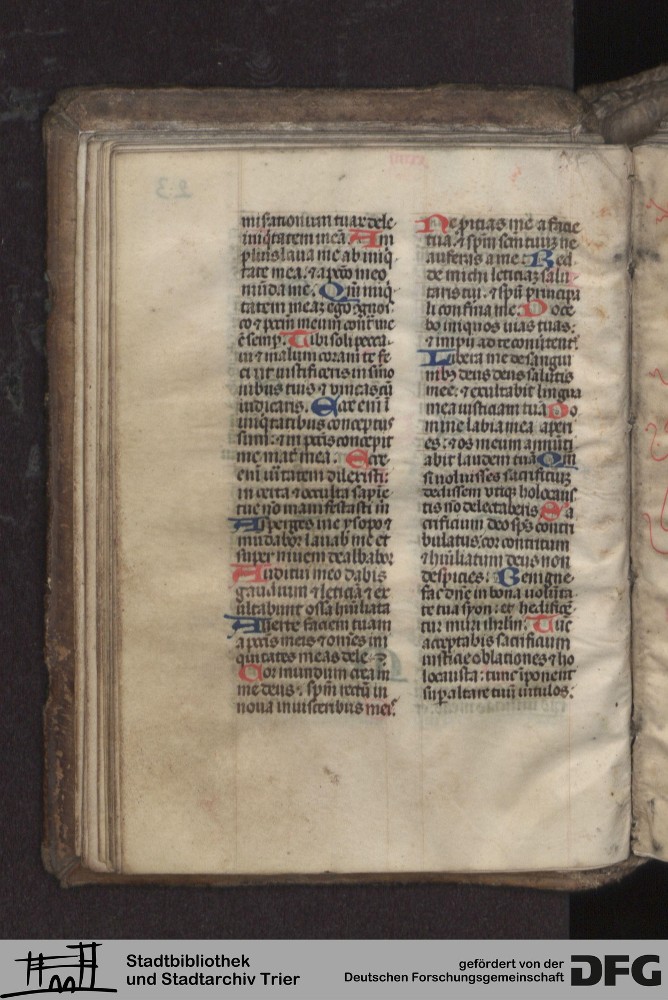 misationum tuar̄ dele
iniq̄tatem meā. Am
plius laua me ab iniq̄
tate mea. ⁊ a pc̄co meo
mūda me. Qm̄ iniq̄
tatem meaꝫ ego ꝯgnos
co ⁊ pc̄cm̄ meum cont̄ me
ē semp̄. Tibi soli pecca
ui ⁊ malum coram te fe
ci ut iustificeris in s̄mo
nibus tuis ⁊ vincas cū
iudicaris. Ecce eni ī
iniq̄tatibus conceptus
sum: ⁊ in pc̄cis concepit
me mat̄ mea. Ecce
eni ūitatem dilexisti:
incerta ⁊ occulta sapiē
tie tue manifestasti m̄
Asperges me ysopo ⁊
mūdabor lauab̄ me et
super niuem dealbabor
Auditui meo dabis
gaudium ⁊ leticiā ⁊ ex
ultabunt ossa hūiliata
Auerte faciem tuam
a pc̄cis meis ⁊ om̄es ini
quitates meas dele.
Cor mundum crea in
me deus. sp̄m rectū in
noua in uisceribus meis.
Ne p̄icias me a facie
tua. ⁊ sp̄m sc̄m tuuꝫ ne
auferas a me. Red
de michi leticiaꝫ salu
taris tui. ⁊ sp̄u principa
li confirma me. Doce
bo iniquos uias tuas:
⁊ impii ad te conūtent̄
Libera me de sangui
nibꝫ deus deus salutis
mee. ⁊ exultabit lingua
mea iusticiam tuā Do
mine labia mea aperi
es: ⁊ os meum annūti
abit laudem tuā Qm̄
si uoluisses sacrificiuꝫ
dedissem utiqꝫ holocaus
tis nō delectaberis Sa
crificium deo sp̄s contri
bulatus: cor contritum
⁊ hūiliatum deus non
despicies. Benigne
fac dn̄e in bona uolūta
te tua syon: et hedificē
tur muri ihrl̄m. Tūc
acceptabis sacrificium
iusticie oblationes ⁊ ho
locausta: tunc īponent
sup̄ altare tuū uitulos.
Stadtbibliothek
und Stadtarchiv Trier
gefördert von der
Deutschen Forschungsgemeinschaft
DFG